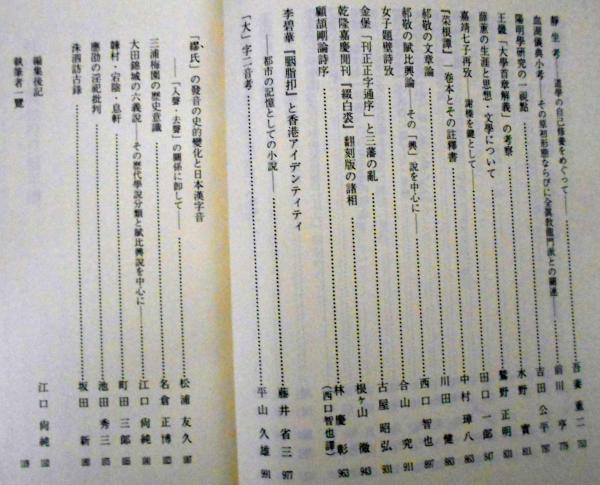 靜坐考――道學の自己修養をめぐって――吾妻重二
血湖儀典小考――その原初形態ならびに全眞教龍門派との關連――前川亨
陽明學研究の一視點 吉田公平
王畿「大學首章解義」の考察 水野實
薛蕙の生涯と思想・文學について 鷲野正明
嘉靖七子再攷――謝榛を鍵として―― 田口一郎 847
『菜根譚』一卷本とその註釋書 中村璋八 863
郝敬の文章論 川田健 883
郝敬の賦比興論――その「興」說を中心に―― 西口智也 897
女子題壁詩攷 合山究 911
金堡「刊正正字通序」と三藩の亂 古屋昭弘 931
乾隆嘉慶間刊『綴白裘』翻刻版の諸相 根ヶ山徹 943
顧頡剛論詩序 林慶彰(西口智也譯) 963
李碧華『胭脂扣』と香港アイデンティティ
――都市の記憶としての小說―― 藤井省三 977
「大」字二音考 平山久雄 991
「繆氏」の發音の史的變化と日本漢字音
――「入聲・去聲」の關係に卽して―― 松浦友久
三浦梅園の歷史意識 名倉正博
大田錦城の六義說――その歷代學說分類と賦比興說を中心に―― 江口尙純
艮村・宕陰・息軒 町田三郞
應劭の淫祀批判 池田秀三
洙泗訪古錄 坂田新
編集後記 江口尙純
執筆者一覽